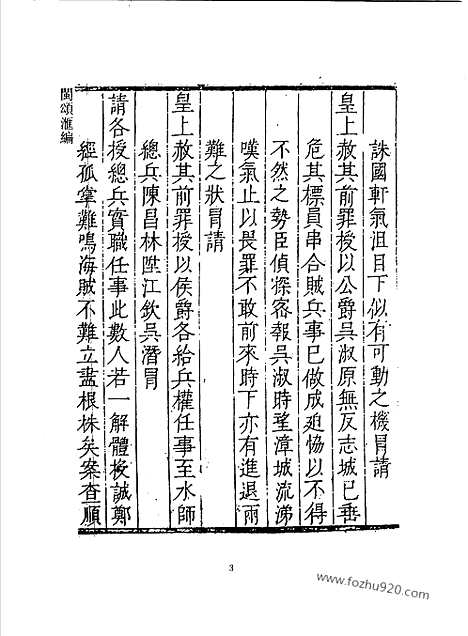 閩頌滙編
誅國軒氣沮目下似有可動之機冐請
皇上赦其前罪授以公爵吳淑原無反志城已垂
危其標員串合賊兵事已做成廹恊以不得
不然之勢臣偵探宻報吳淑時望漳城流涕
嘆氣止以畏罪不敢前來時下亦有進退兩
難之狀冐請
皇上赦其前罪授以侯爵各給兵權任事至水師
總兵陳昌林陞江欽吳潛冐
請各授總兵實職任事此數人若一解體投誠鄭
經孤掌難鳴海賊不難立盡根株矣案查順
3
www.fozhu920.com